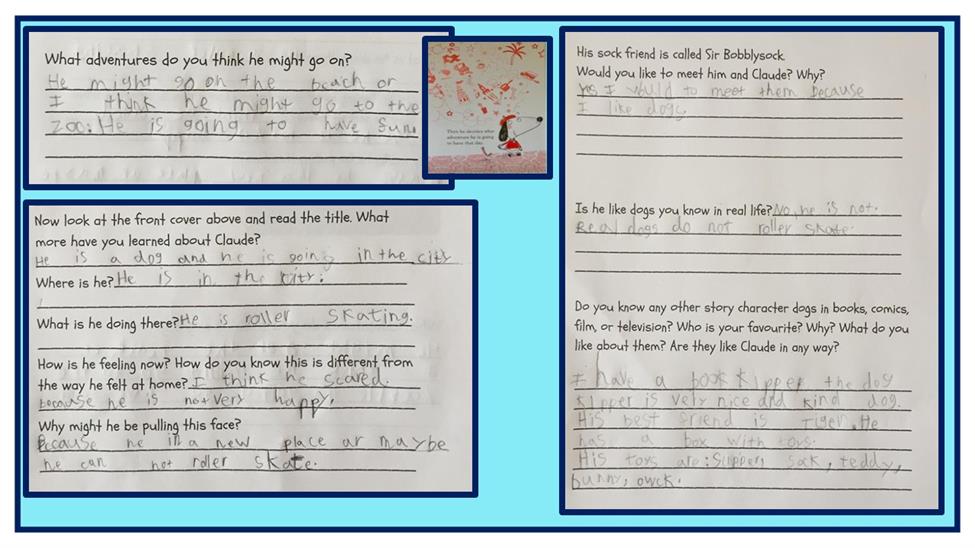 What adventures do you think he might go on?
He might go on the beach or
I think he might go to the
zoo. He is going to have fun.
Then he decides what
adventure he is going
to have that day.
Now look at the front cover above and read the title. What
more have you learned about Claude?
He is a dog and he is going in the city
Where is he? He is in the kity.
What is he doing there? He is roller skating.
How is he feeling now? How do you know this is different from
the way he felt at home? I think he scared.
because he is not very happy.
Why might he be pulling this face?
Because he in a new place ar maybe
he can not roller skate.
His sock friend is called Sir Bobblysock.
Would you like to meet him and Claude? Why?
yes I would to meet them because
I like dogs.
Is he like dogs you know in real life? No, he is not.
Real dogs do not roller skate.
Do you know any other story character dogs in books, comics,
film, or television? Who is your favourite? Why? What do you
like about them? Are they like Claude in any way?
I have a book Kipper the dog
Kipper is very nice and kind dog.
His best friend is Tiger. He
has a box with toys.
His toys are: Slipper, sock, teddy,
bunny, owck.